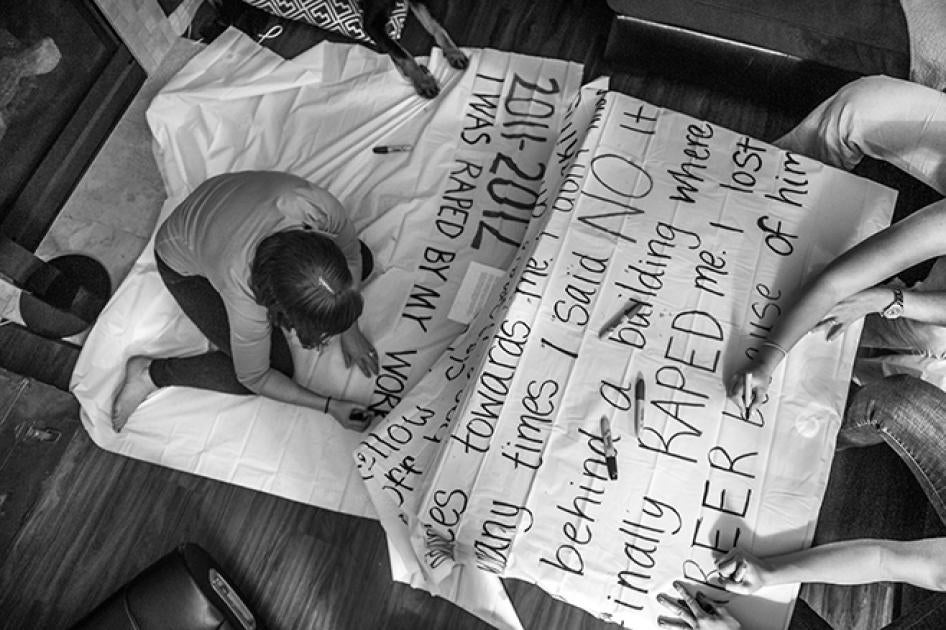 2011-2012
I WAS RAPED BY MY WORK
towards me. I didn't
many times I said NO It
behind a building where
finally RAPED me. I lost
REER because of him